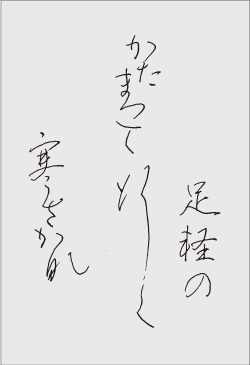 足軽の
かたまつて行く
寒さかな